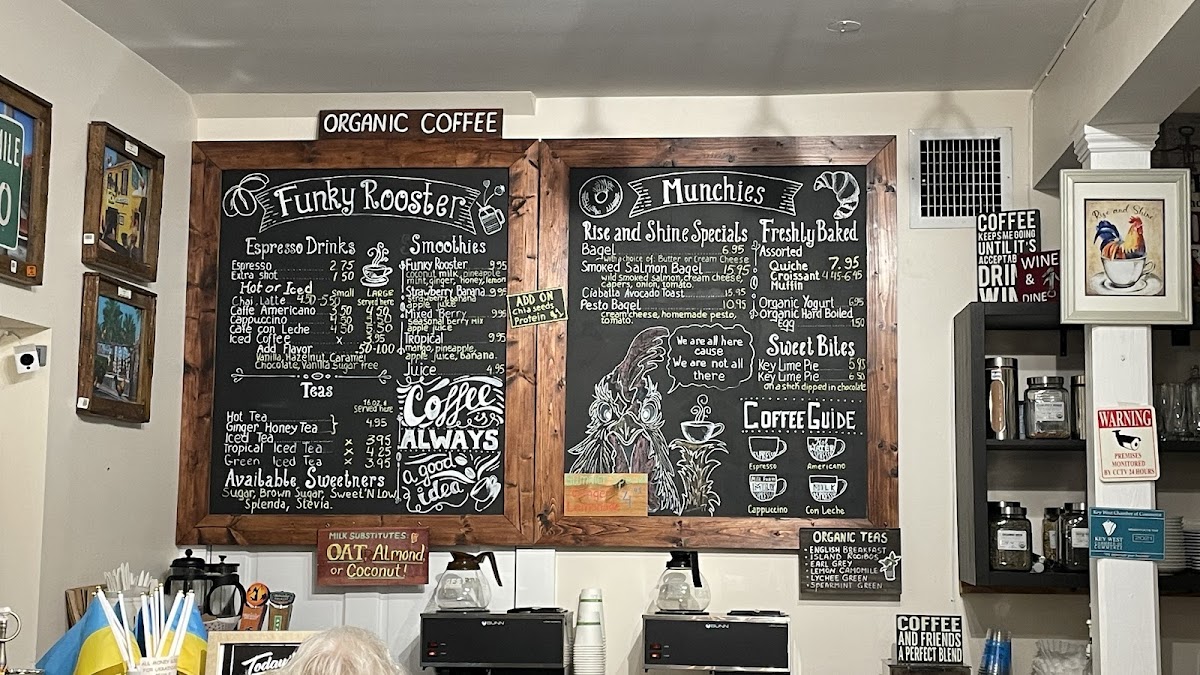 ORGANIC COFFEE
Funky Rooster
Espresso Drinks
Espresso 2.75
Extra shot 1.50
Hot or Iced small LARGE
Served here
Chai Latte 4.50 5.50
Caffe Americano 3.50 4.50
Cappuccino 4.50 5.50
Cafe con Leche 4.50 5.50
Iced Coffee x 3.95
Add Flavor .50-1.00
Vanilla, Hazelnut, Caramel
Chocolate, Vanilla Sugar Free
Teas
16 oz.
served here
Hot Tea
Ginger Honey Tea 4.95
Iced Tea x 3.95
Tropical Iced Tea x 4.25
Green Iced Tea x 3.95
Available Sweetners
Sugar, Brown Sugar, Sweet'N Low,
Splenda, Stevia.
Smoothies
Funky Rooster 9.95
coconut milk, pineapple
mint, ginger, honey, lemon
Strawberry Banana 9.95
strawberry, banana
apple juice
Mixed Berry 9.95
seasonal berry mix
apple juice
Tropical 9.95
mango, pineapple,
apple juice, banana.
Juice 4.95
Coffee is
ALWAYS
a good
idea
ADD ON
Chia seeds
Protein $1
Munchies
Rise and Shine Specials
Bagel 6.95
with choice of: Butter or Cream Cheese
Smoked Salmon Bagel 15.95
wild smoked salmon, cream cheese,
capers, onion, tomato.
Ciabatta Avocado Toast 15.95
Pesto Bagel 10.95
cream cheese, homemade pesto,
tomato.
We are all here
cause
We are not all
there
Freshly Baked
Assorted
Quiche 7.95
Croissant 4.45-6.95
Muffin
Organic Yogurt 6.95
Organic Hard Boiled
Egg 1.50
Sweet Bites
Key Lime Pie 5.95
Key Lime Pie 6.50
on a stick dipped in chocolate
COFFEE GUIDE
Espresso
Americano
Cappuccino
MILK
Con Leche
MILK SUBSTITUTES:
OAT Almond
or Coconut!
ORGANIC TEAS
• ENGLISH BREAKFAST
• ISLAND ROOIBOS
• EARL GREY
• LEMON CAMOMILE
• LYCHEE GREEN
• SPEARMINT GREEN
COFFEE
KEEPS ME GOING
UNTIL IT'S
ACCEPTAB
DRIN
WIN
WINE
&
DINE
Rise and Shine
WARNING
PREMISES
MONITORED
BY CCTV 24 HOURS
Key West Chamber of Commerce
KEY WEST
COFFEE
AND FRIENDS
A PERFECT BLEND
BUNN
BUNN
Today
MILE
0